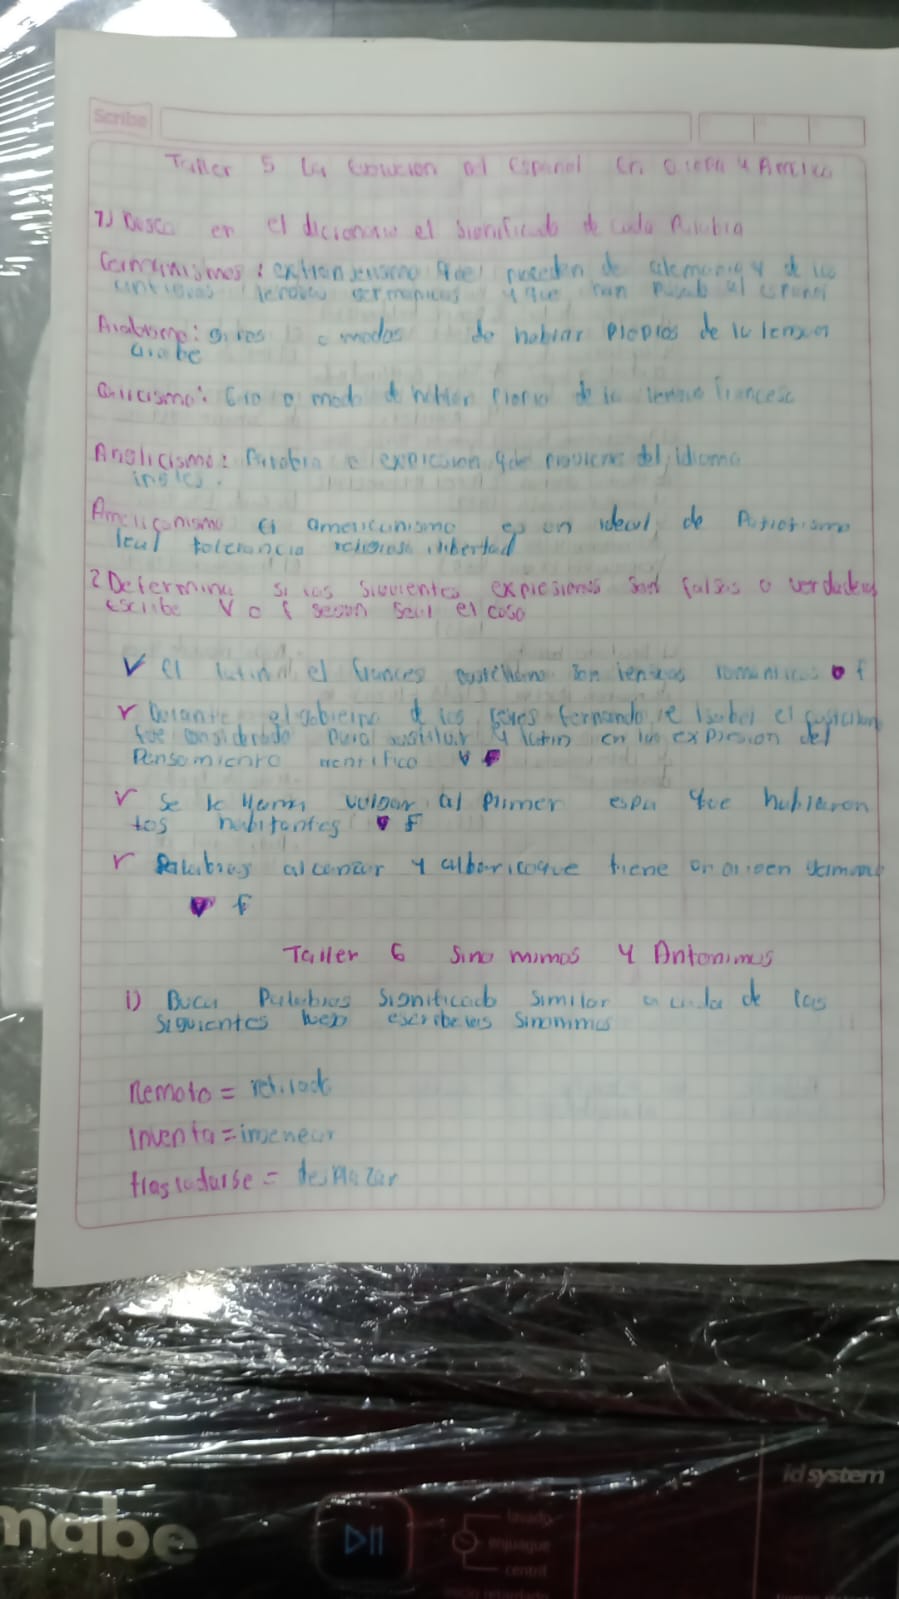 Scribe
Taller 5 La Evolucion del Español En y America
1) Busca en el dicionario el significado de cada Palabra
Germanismos: extranjerismo que proceden de alemania y de las
antiguas lenguas germanicas y que han pasado al español
Arabismo: giros o modos de hablar Propios de la lengua
arabe
Galicismo: Giro o modo de hablar Propio de la lengua francesa
Anglicismo: Palabra o expresion que proviene del idioma
ingles.
Americanismo el americanismo es un ideal de Patriotismo
leal tolerancia religiosa libertad
2 Determina si las siguientes expresiones son falsas o verdaderas
escribe V o f segun sea el caso
✓ El latin el frances castellano son lenguas romanicas f
✓ Durante el gobierno d los reyes fernando e Isabel el castellano
fue considerado para sustituir latin en las expresion del
Pensamiento cientifico V F
✓ Se le llama vulgar al primer que hablaron
los habitantes V F
✓ Palabras alcanzar y albaricoque tiene un origen
V F
Taller 6 Sinomimos y Antonimos
1) Busca Palabras significado similar a cada de las
siguientes escribe sinonimos
Remoto = retirado
Inventa =
trasladarse = desplazar
id system
mabe
lavado
enjuague
centrif